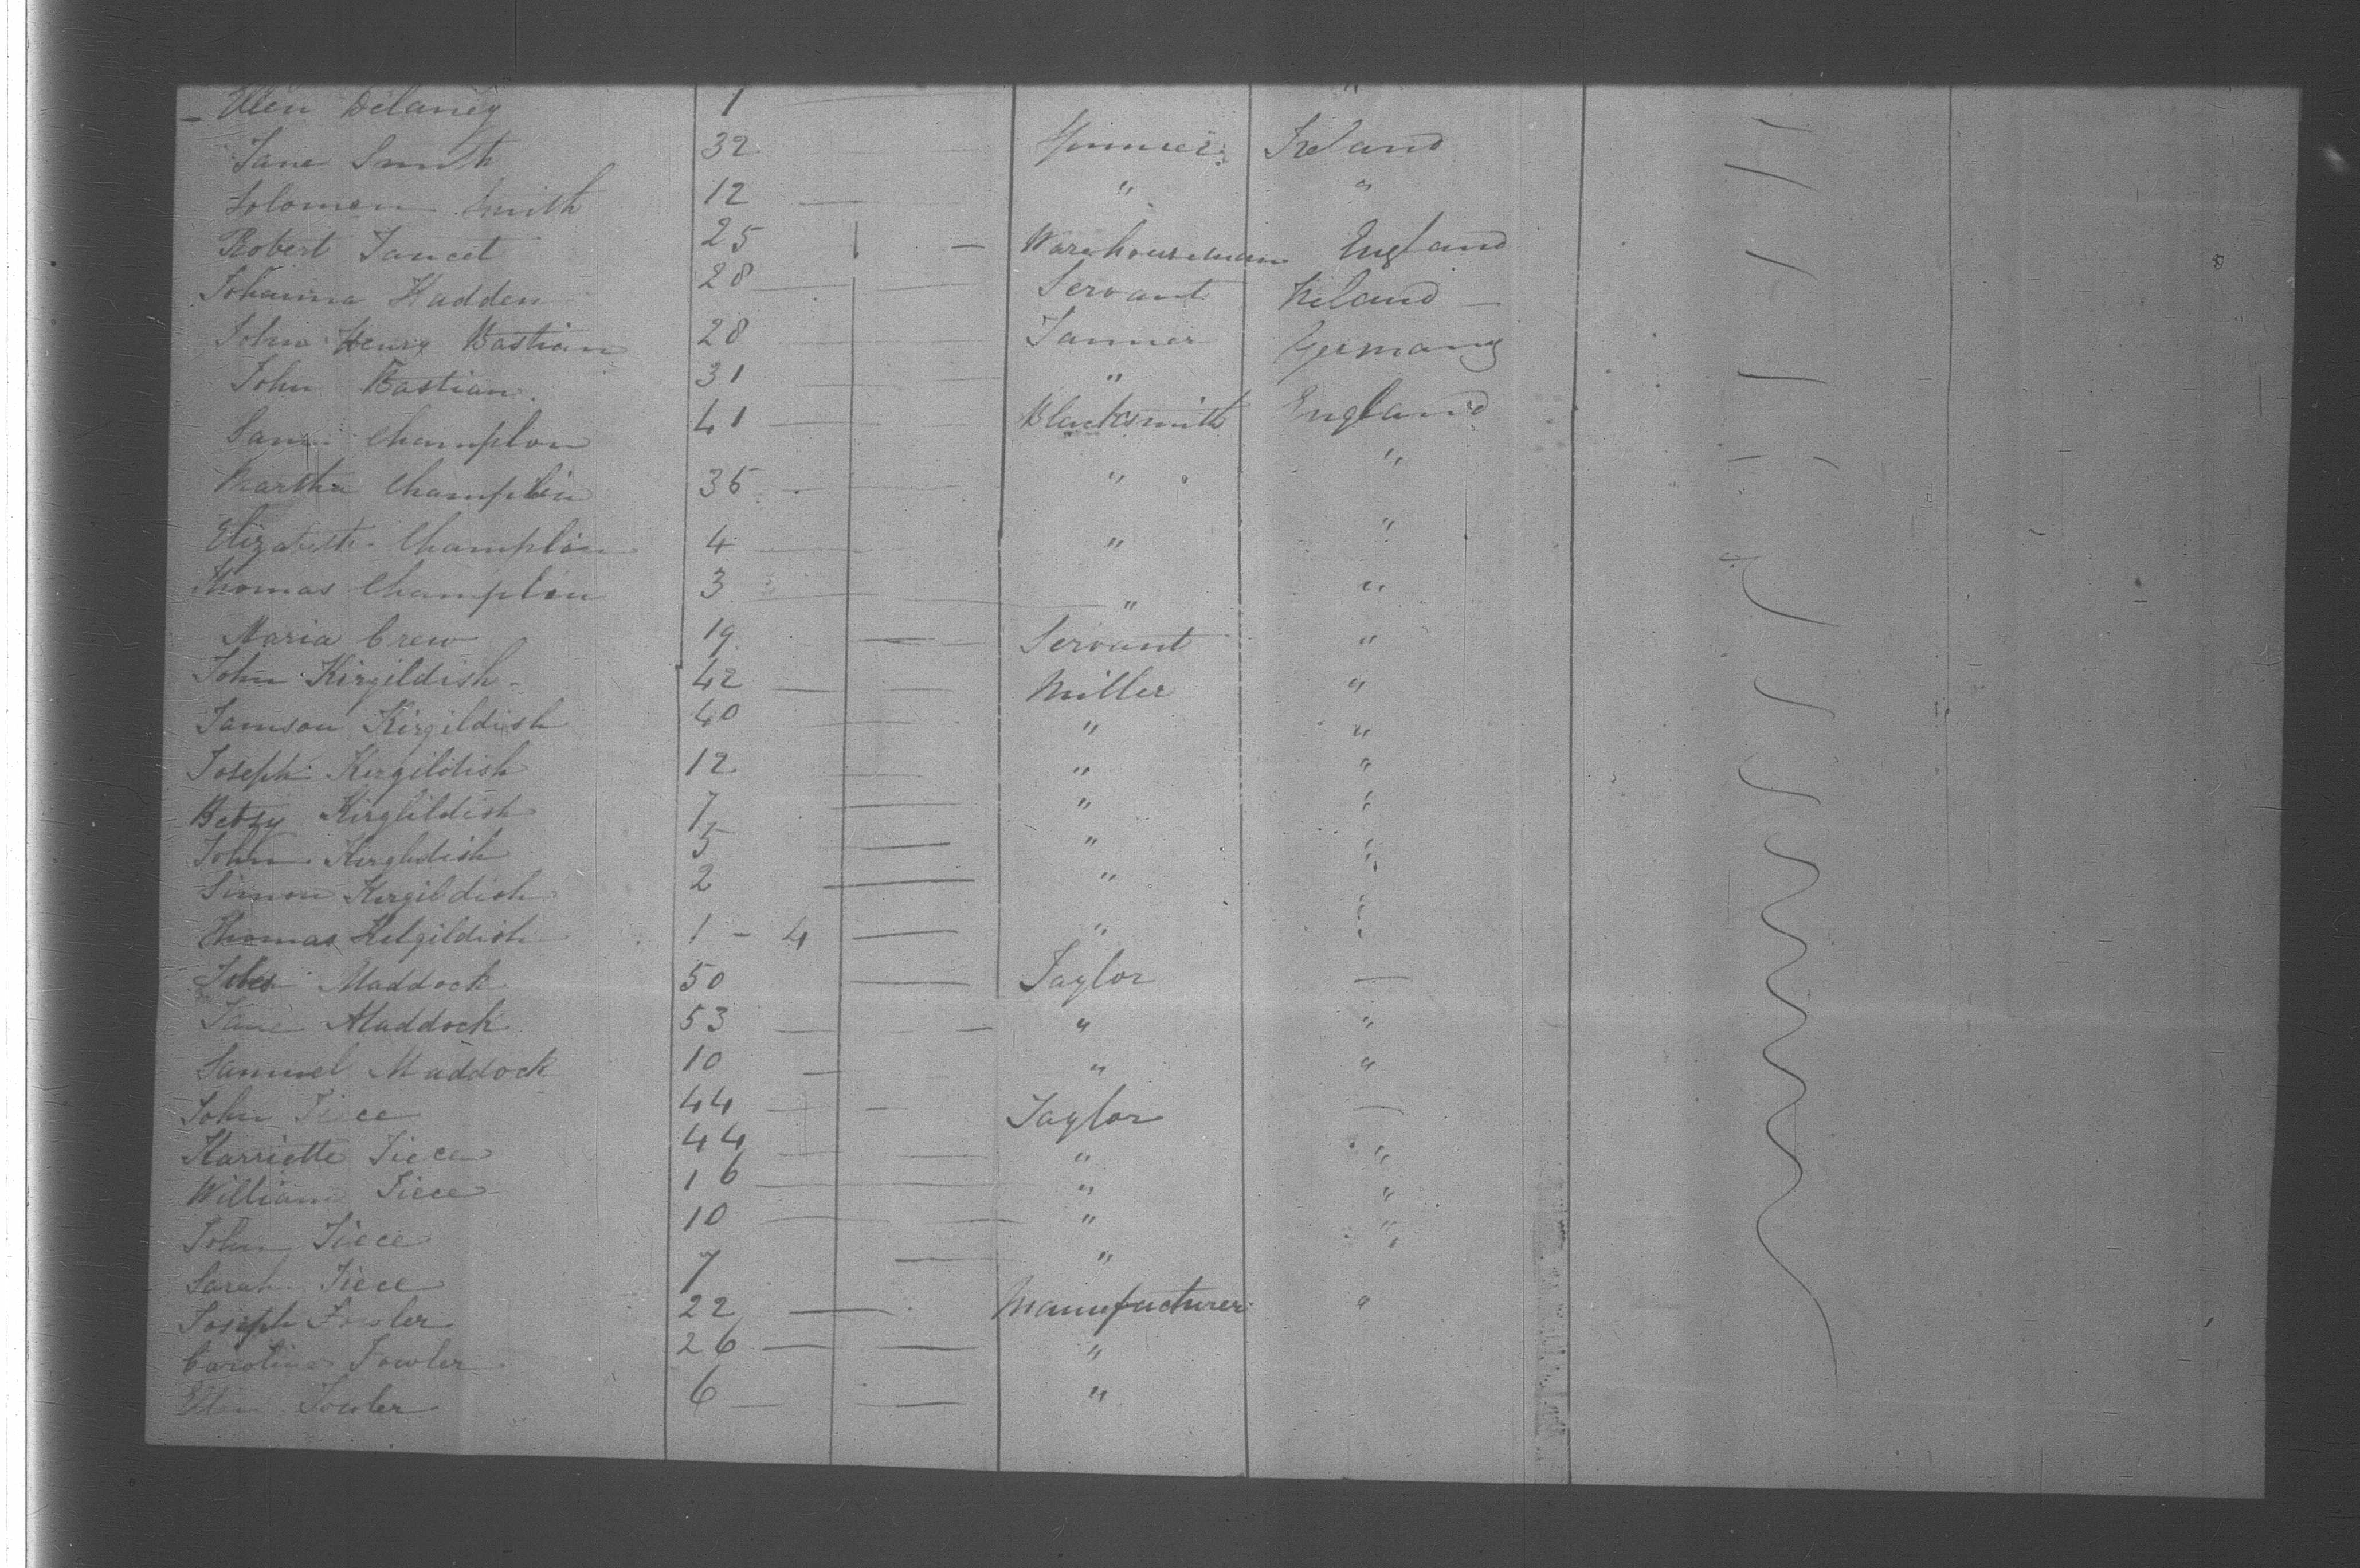 Ellen Delaney 1 "
Jane Smith 32 Spinner Ireland
Solomon Smith 12 " "
Robert Faucet 25 Warehouseman England
Johanna Hadden 28 Servant Ireland
John Henry Bastian 28 Tanner Germany
John Bastian 31 "
Saml Champlon 41 Blacksmith England
Martha Champlin 36 " "
Elizabeth Champlin 4 " "
Thomas Champlin 3 " "
Maria Crew 19 Servant "
John Kirgildish 42 Miller "
Tamson Kirgildish 40 " "
Joseph Kirgildish 12 " "
Betsy Kirglildish 7 " "
John Kirgldish 5 " "
Simon Kirgildish 2 "
Thomas Kilgildish 1 - 4 " "
Maddock 50 Taylor —
Jane Maddock 53 " "
Samuel Maddock 10 " "
John Tiece 44 Taylor —
Harriette Tiece 44 " "
William Tiece 16 " "
John Tiece 10 " "
Sarah Tiece 7 "
Joseph Fowler 22 Manufacturer "
Caroline Fowler 26 "
Ellen Fowler 6 "